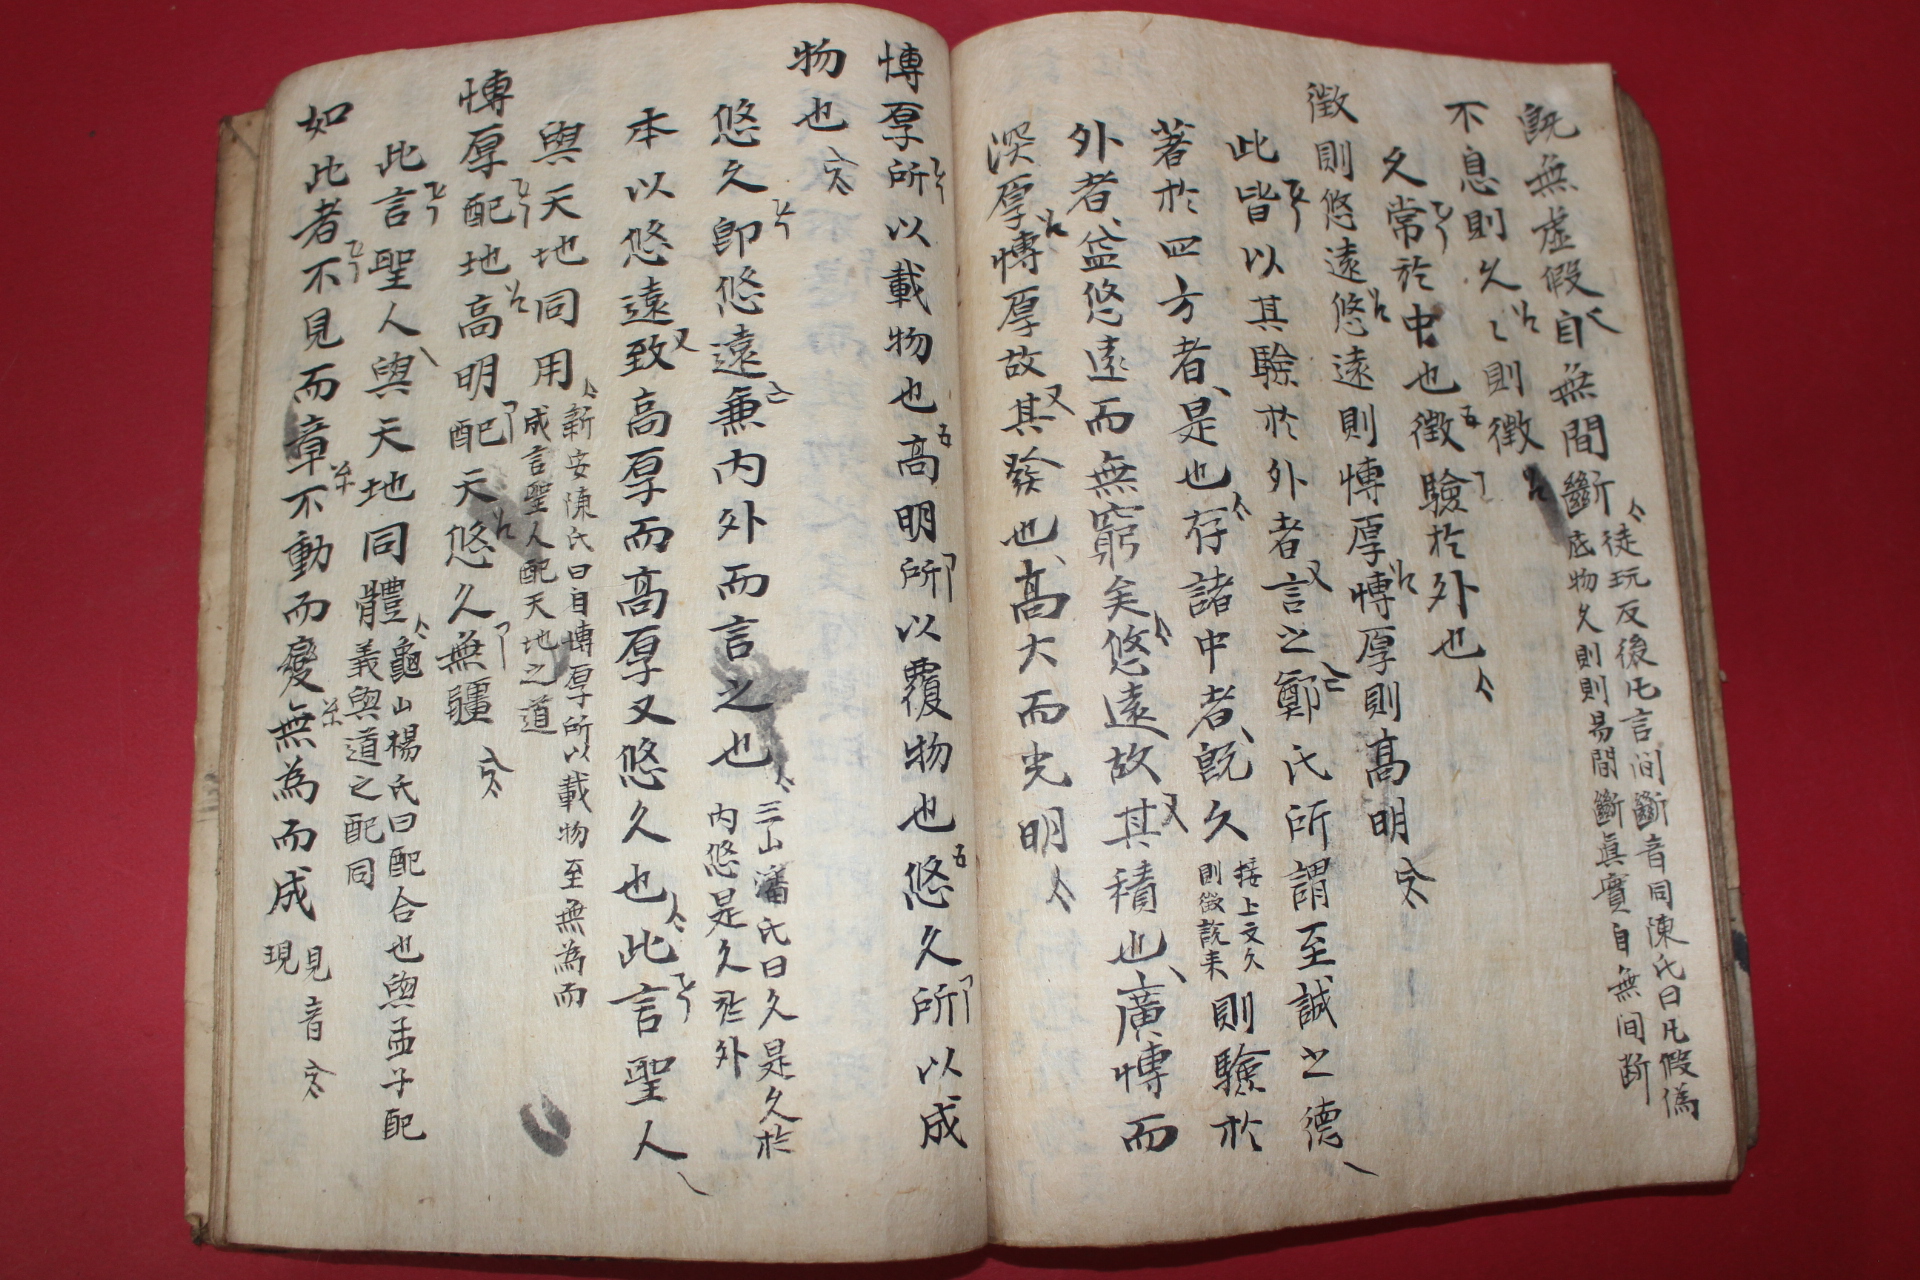 既無虛假自無間斷
徒玩反後凡言间斷音同陳氏曰凡假僞
底物久則則易間斷眞實自無间断
不息則久〻則徵
久常於中也徵驗於外也
徵則悠遠悠遠則博厚博厚則高明
此皆以其驗於外者言之鄭氏所謂至誠之德
著於四方者是也存諸中者既久
接上文久
則徵說来
則驗於
外者益悠遠而無窮矣悠遠故其積也廣博而
深厚博厚故其發也高大而光明
博厚所以載物也高明所以覆物也悠久所以成
物也
悠久卽悠遠兼內外而言之也
三山潘氏曰久是久於
內悠是久於外
本以悠遠致高厚而高厚又悠久也此言聖人
與天地同用
新安陳氏曰自博厚所以載物至無為而
成言聖人配天地之道
博厚配地高明配天悠久無疆
此言聖人與天地同體
龜山楊氏曰配合也與孟子配
義與道之配同
如此者不見而章不動而變無為而成
見音
現